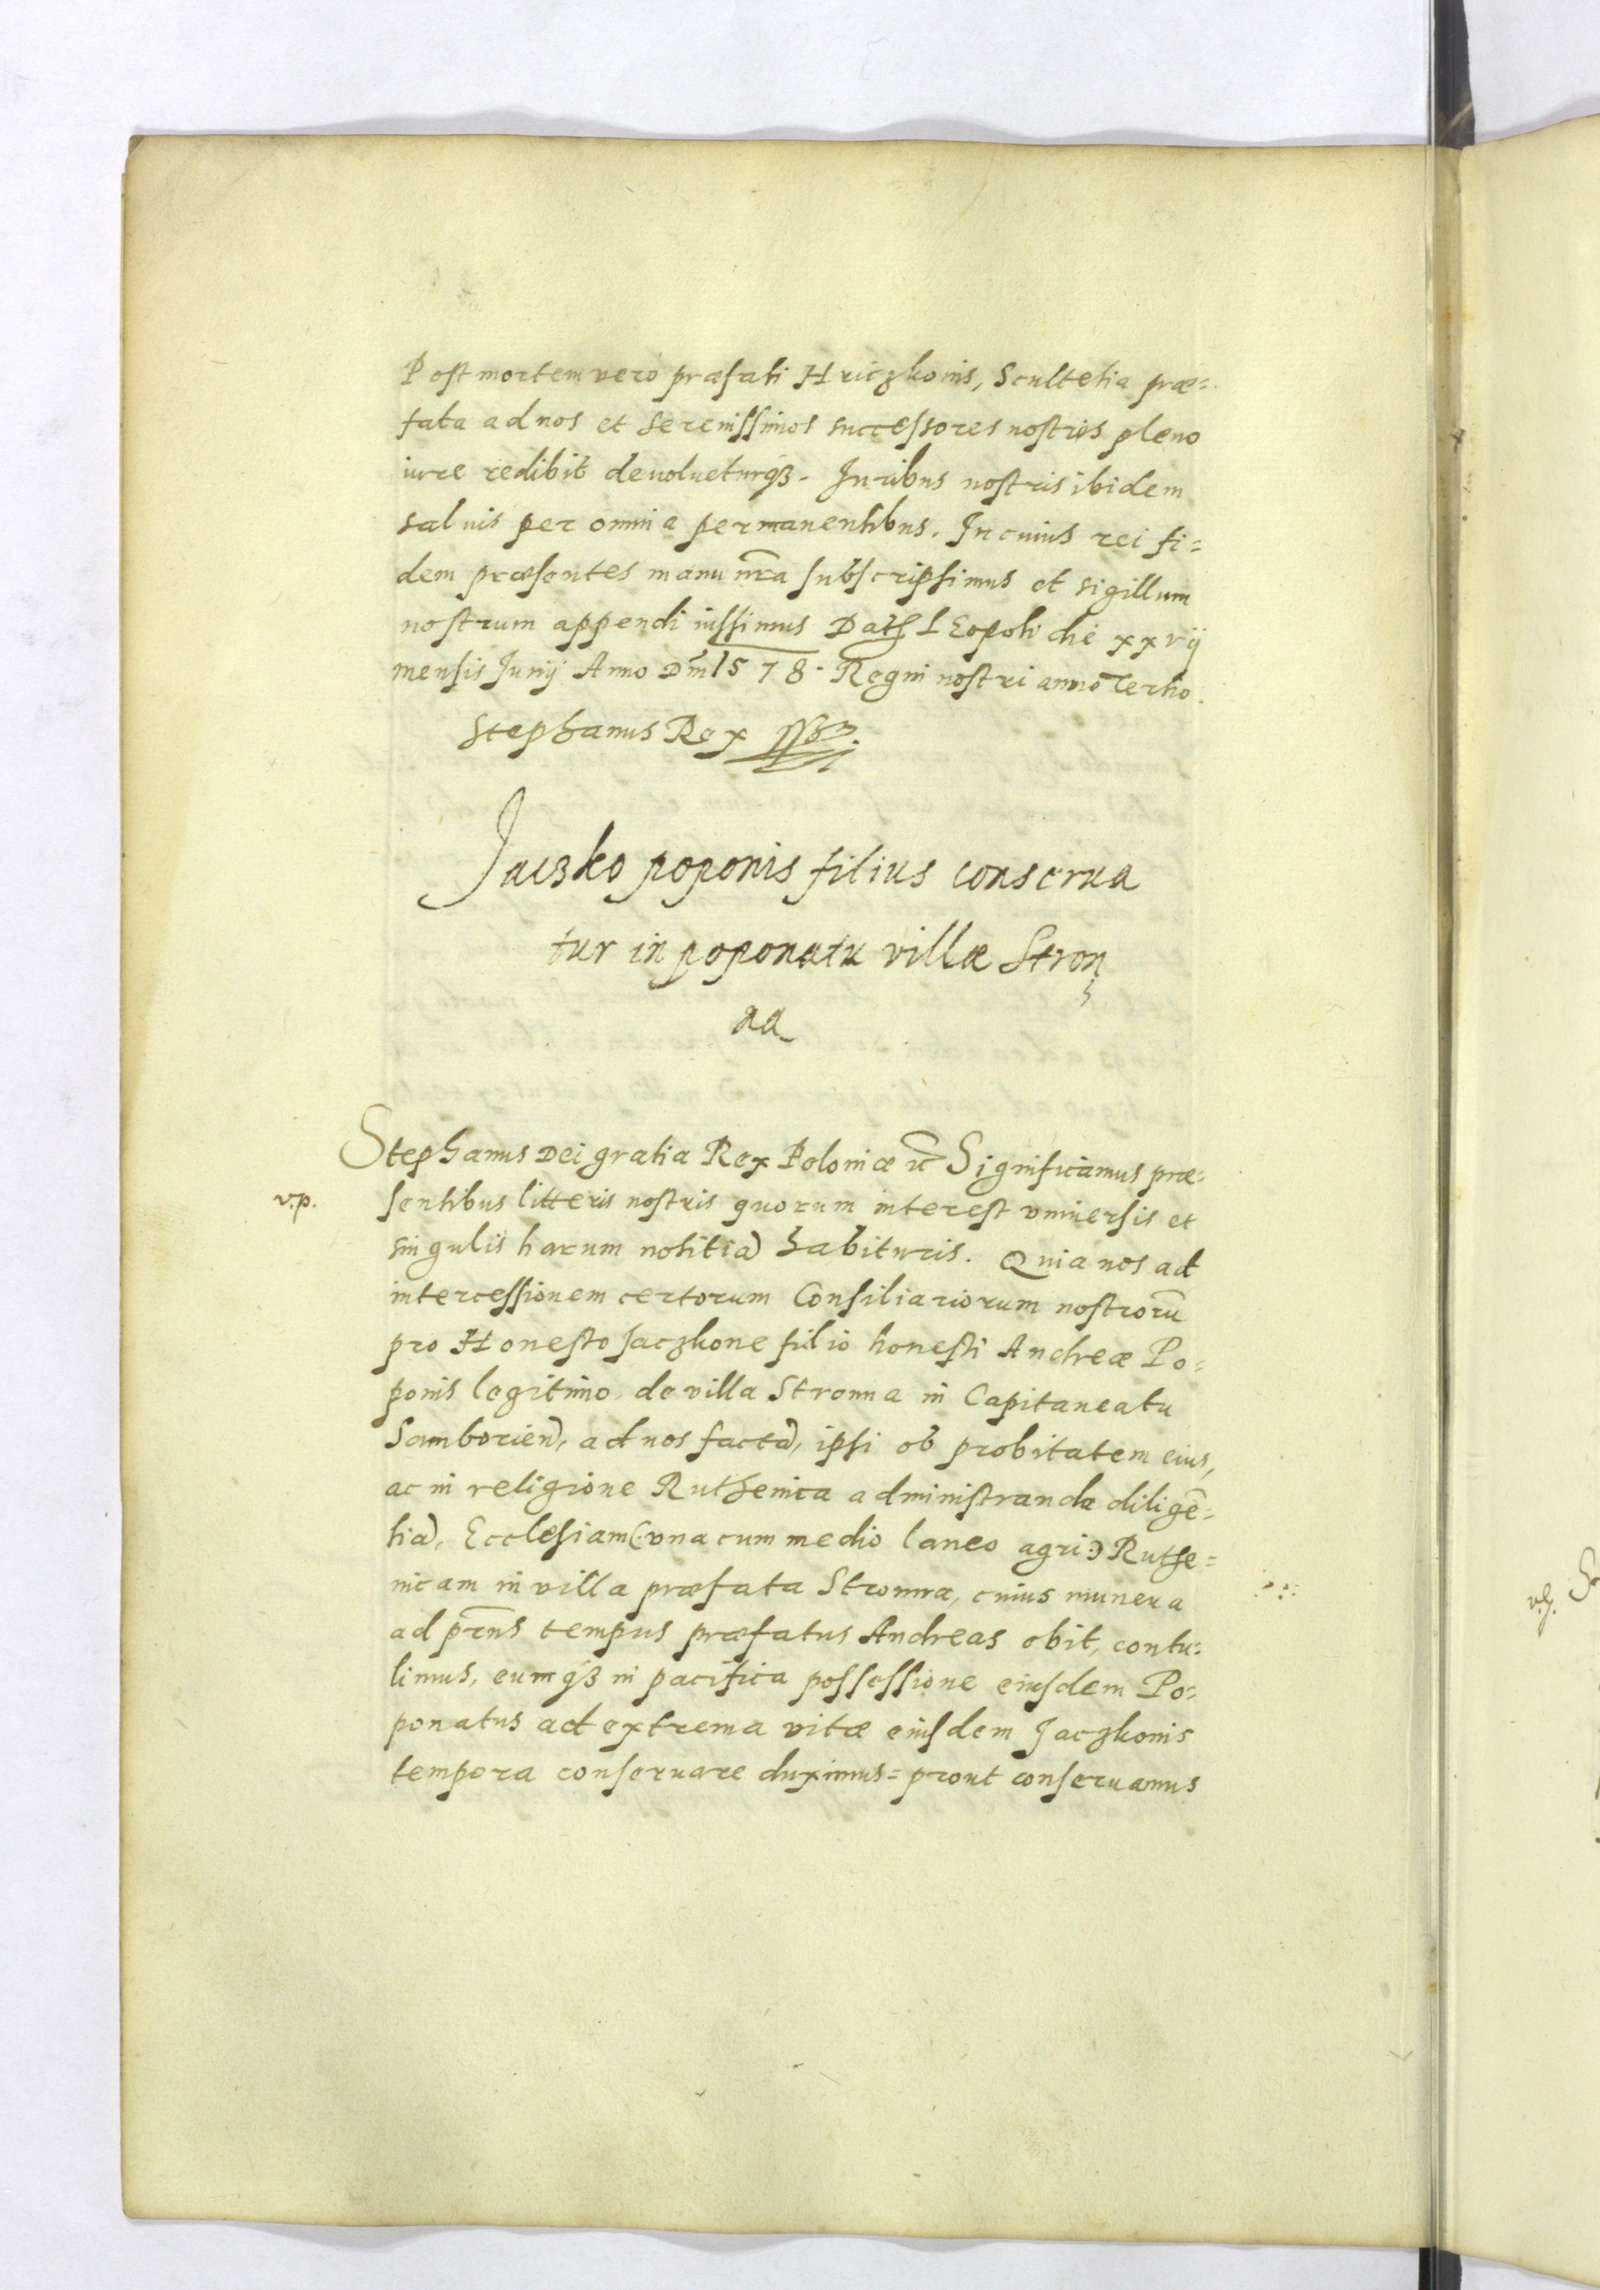 Post mortem vero præfati Hriczkonis, Scultetia præ=
fata ad nos et serenissimos successores nostros pleno
iure redibit devolueturq3. Juribus nostris ibidem
salvis per omnia permanentibus. In cuius rei fi=
dem præsentes manu nr̃a subscripsimus et sigillum
nostrum appendi iussimus Dat Leopoli die xxvij
mensis Junij Anno Dm̃ 1578. Regni nostri anno Tertio.
Stephanus Rex
Jaczko poponis filius conserua
tur in poponatu villæ Stron
na
Stephanus Dei gratia Rex Poloniæ etc̃ Significamus præ=
v.p.
sentibus litteris nostris quorum interest vniuersis et
singulis harum notitiã habituris. Quia nos ad
intercessionem certorum Consiliariorum nostrorũ
pro Honesto Jaczkone filio honesti Andreæ Po=
ponis legitimo, de villa Stronna in Capitaneatu
Samborieñ, ad nos factã, ipsi ob probitatem eius,
ac in religione Ruthenica administranda diligẽ=
tiã, Ecclesiam (: vna cum medio laneo agri :) Ruthe=
nicam in villa præfata Stronna, cuius munera
ad pr̃ns tempus præfatus Andreas obit, contu=
limus, eumq3 in pacifica possessione eiusdem Po=
ponatus ad extrema vitæ eiusdem Jaczkonis
tempora conseruare duximus= prout conseruamus